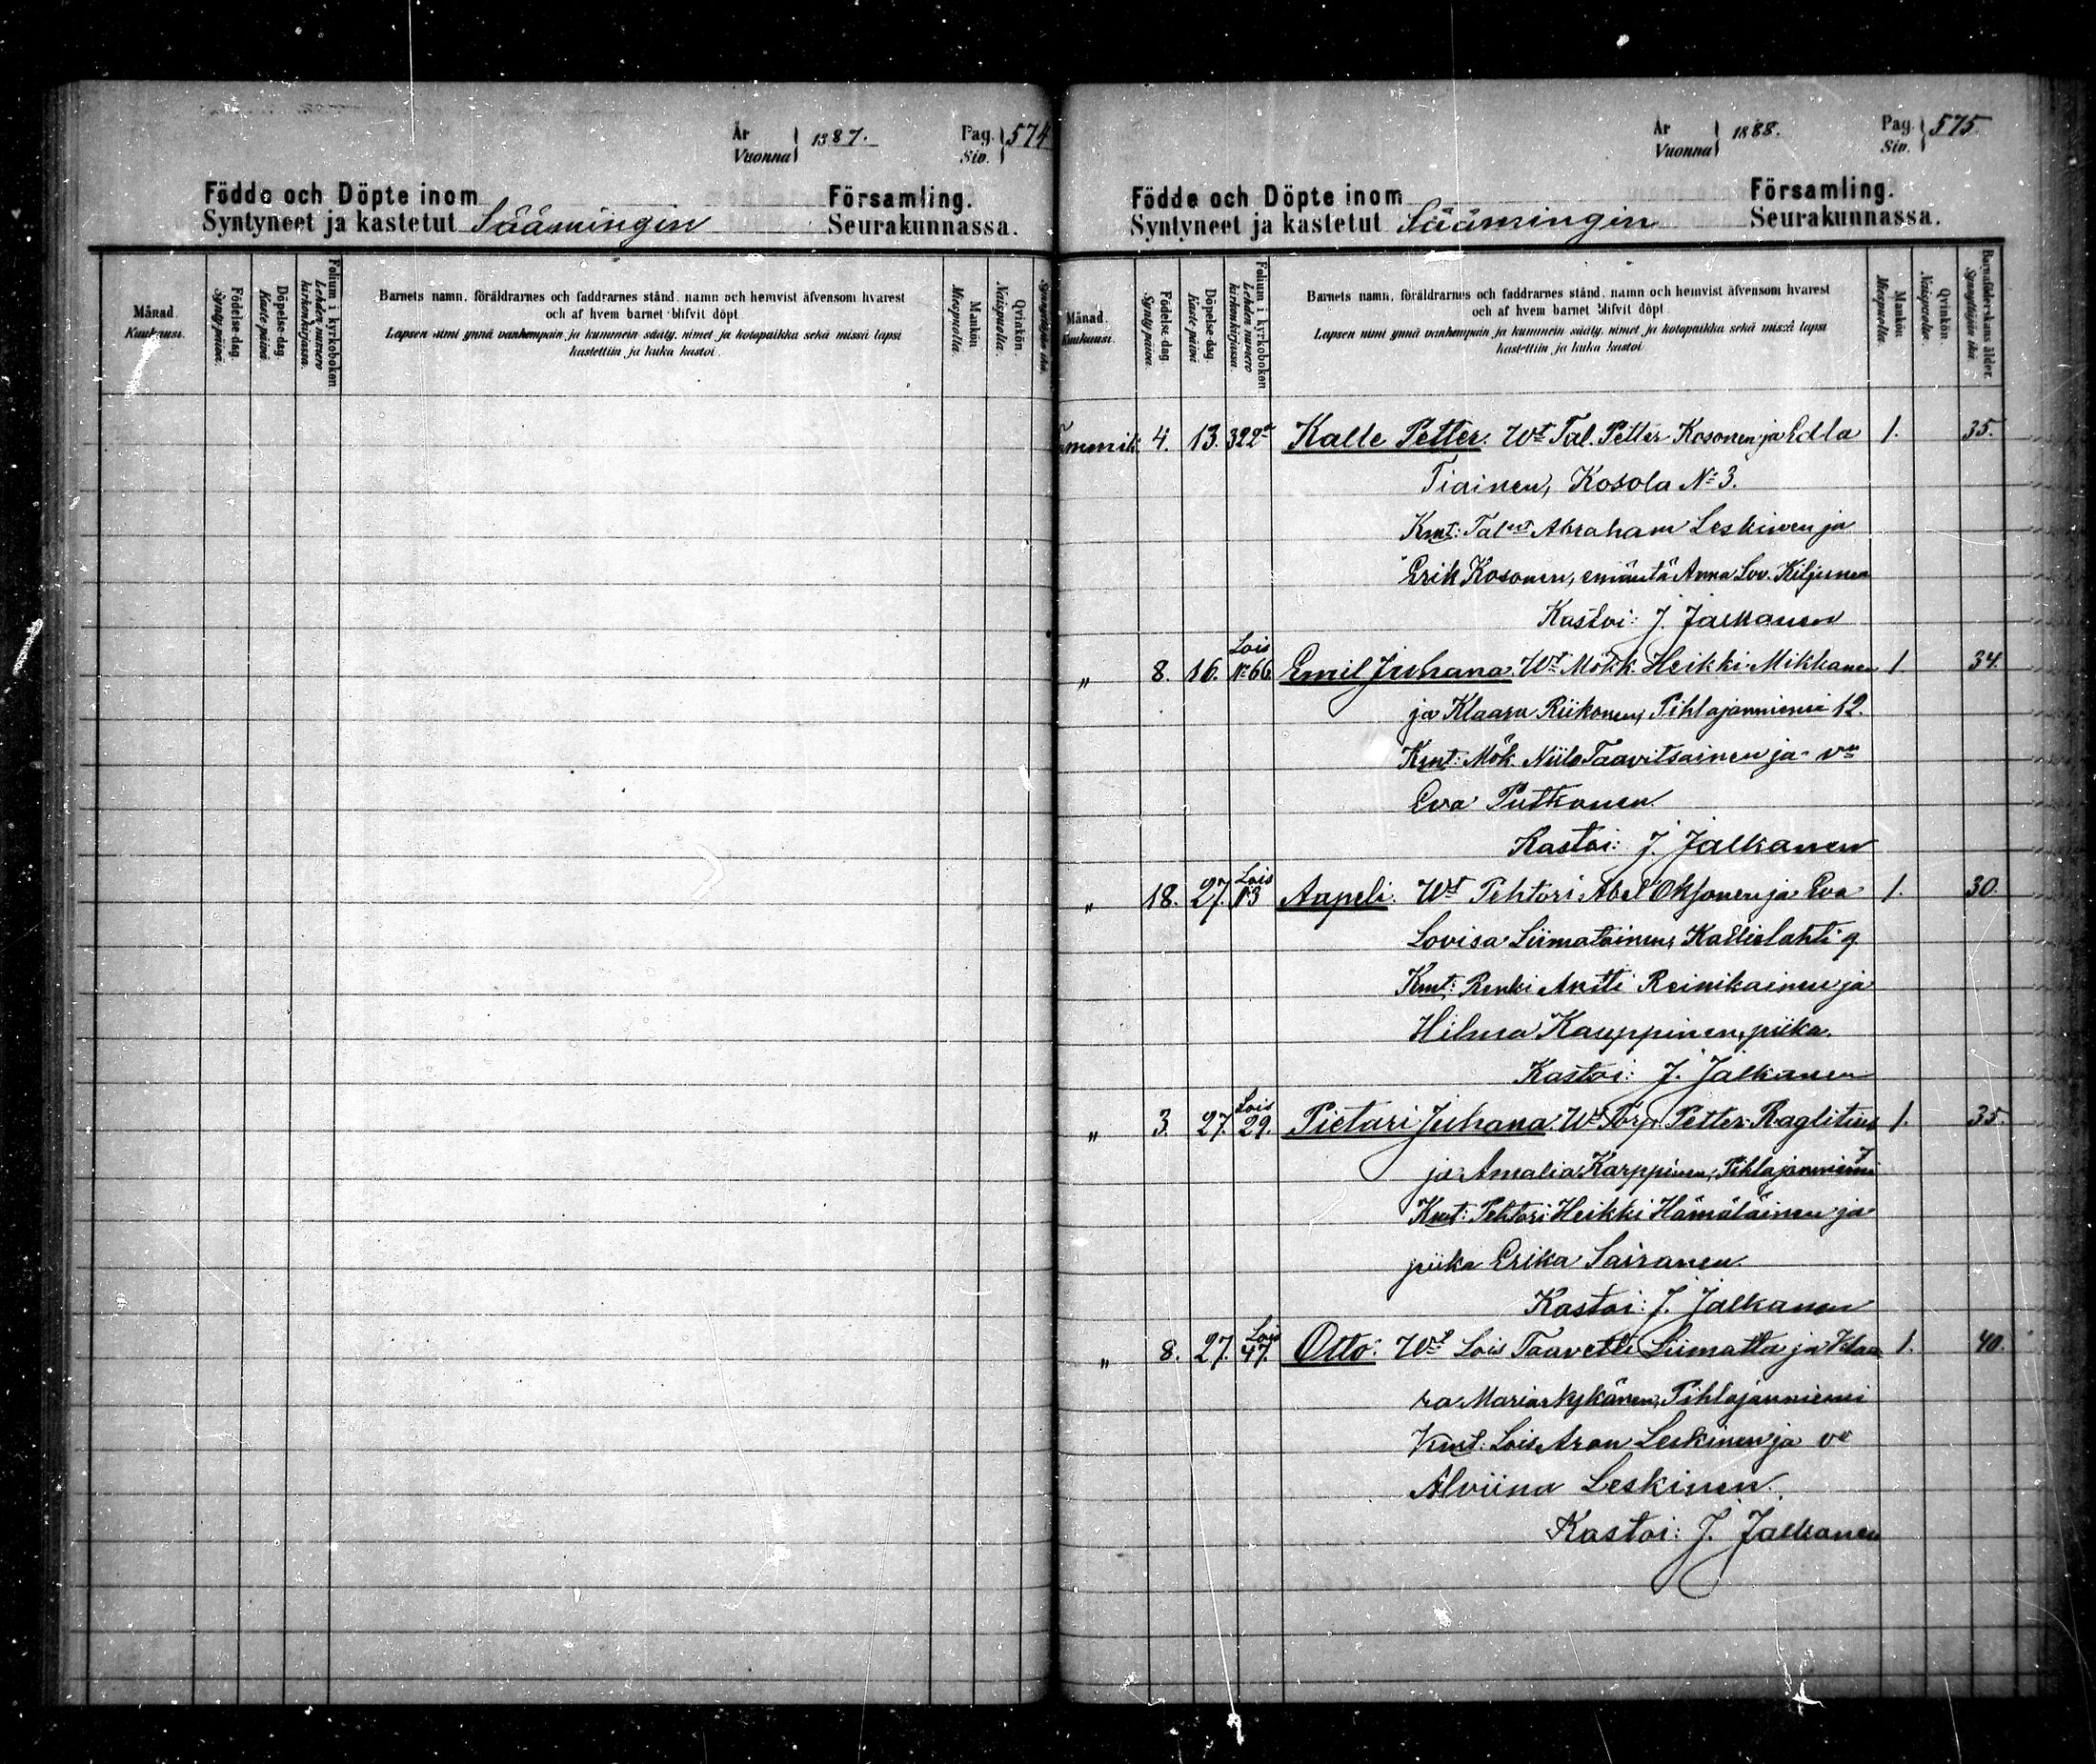 År
Vuonna } 1887.
Pag.
Siv. } 574
Födde och Döpte inom Församling.
Syntyneet ja kastetut Säämingin Seurakunnassa.
Månad. Kuukausi.
Födelse-dag. Synty päivä.
Döpelse-dag. Kaste päivä
Folium i kyrkoboken Lehden numero kirkonkirjassa.
Barnets namn, föräldrarnes och faddrarnes stånd, namn och hemvist äfvensom hvarest
och af hvem barnet blifvit döpt
Lapsen nimi ynnä vanhempain ja kummein sääty, nimet ja kotopaikka sekä missä lapsi
kastettiin ja kuka kastoi.
Mankön Miespuolia.
Qvinkön. Naispuolia.
Synnyttäjän ikä.
År
Vuonna } 1888.
Pag.
Siv. } 575.
Födde och Döpte inom Församling.
Syntyneet ja kastetut Säämingin Seurakunnassa.
Månad. Kuukausi.
Födelse-dag. Synty päivä.
Döpelse-dag. Kaste päivä
Folium i kyrkoboken Lehden numero kirkonkirjassa.
Barnets namn, föräldrarnes och faddrarnes stånd, namn och hemvist äfvensom hvarest
och af hvem barnet blifvit döpt
Lapsen nimi ynnä vanhempain ja kummein sääty, nimet ja kotopaikka sekä missä lapsi
kastettiin ja kuka kastoi
Mankön Miespuolia.
Qvinkön. Naispuolia.
Barnaföderskans ålder. Synnyttäjän ikä.
Tammik. 4. 13. 322 Kalle Petter. Wt Tal. Petter Kosonen ja Edla 1. 35.
Tiainen, Kosola No 3.
Kmt: Talset Abraham Leskinen ja
Erik Kosonen, emäntä Anna Lov. Kiljunen
Kastoi: J. Jalkanen
" 8. 16. Lois No 66 Emil Juhana. Wt Mökk. Heikki Mikkanen 1 34.
ja Klaara Riikonen, Pihlajanniemi 12.
Kmt: Mök. Niilo Taavitsainen ja vo
Eva Putkonen
Kastoi: J. Jalkanen
" 18. 27. Lois 13 Aapeli. Wt Pehtori Abel Oksonen ja Eva 1. 30.
Lovisa Liimatainen, Kallislahti 9
Kmt: Renki Antti Reinikainen ja
Hilma Kauppinen, piika.
Kastoi: J. Jalkanen
" 3. 27. Lois 29. Pietari Juhana. Wt Torp. Petter Raglitius 1. 35.
ja Amalia Karppinen, Pihlajanniemi 7
Kmt: Pehtori Heikki Hämäläinen ja
piika Erika Sairanen
Kastoi: J. Jalkanen
" 8. 27. Lois 47. Otto. Wt Lois Taavetti Liimatta ja Klaa 1. 40.
ra Maria Nykänen, Pihlajanniemi
Kmt: Lois Aron Leskinen ja vo
Alviina Leskinen.
Kastoi: J. Jalkanen